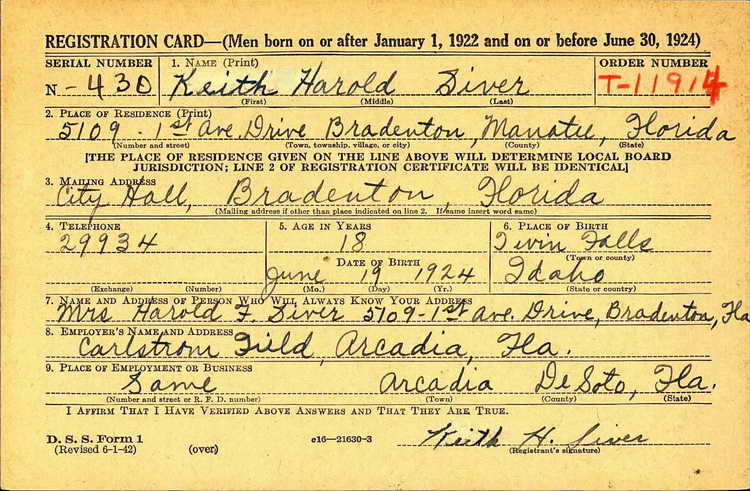 REGISTRATION CARD—(Men born on or after January 1, 1922 and on or before June 30, 1924)
SERIAL NUMBER 1. NAME (Print) ORDER NUMBER
N -430 Keith Harold Siver T-11914
(First) (Middle) (Last)
2. PLACE OF RESIDENCE (Print)
5109 1st Ave. Drive Bradenton, Manatee, Florida
(Number and street) (Town, township, village, or city) (County) (State)
[THE PLACE OF RESIDENCE GIVEN ON THE LINE ABOVE WILL DETERMINE LOCAL BOARD
JURISDICTION; LINE 2 OF REGISTRATION CERTIFICATE WILL BE IDENTICAL]
3. MAILING ADDRESS
City Hall, Bradenton, Florida
(Mailing address if other than place indicated on line 2. If same insert word same)
4. TELEPHONE 5. AGE IN YEARS 6. PLACE OF BIRTH
29934 18 Twin Falls
DATE OF BIRTH (Town or county)
June 19 1924 Idaho
(Exchange) (Number) (Mo.) (Day) (Yr.) (State or country)
7. NAME AND ADDRESS OF PERSON WHO WILL ALWAYS KNOW YOUR ADDRESS
Mrs Harold F. Siver 5109-1st Ave. Drive, Bradenton, Fla
8. EMPLOYER'S NAME AND ADDRESS
Carlstrom Field, Arcadia, Fla.
9. PLACE OF EMPLOYMENT OR BUSINESS
Same Arcadia DeSoto, Fla.
(Number and street or R. F. D. number) (Town) (County) (State)
I AFFIRM THAT I HAVE VERIFIED ABOVE ANSWERS AND THAT THEY ARE TRUE.
D. S. S. Form 1 c16—21630-3 Keith H. Siver
(Revised 6-1-42) (over) (Registrant's signature)